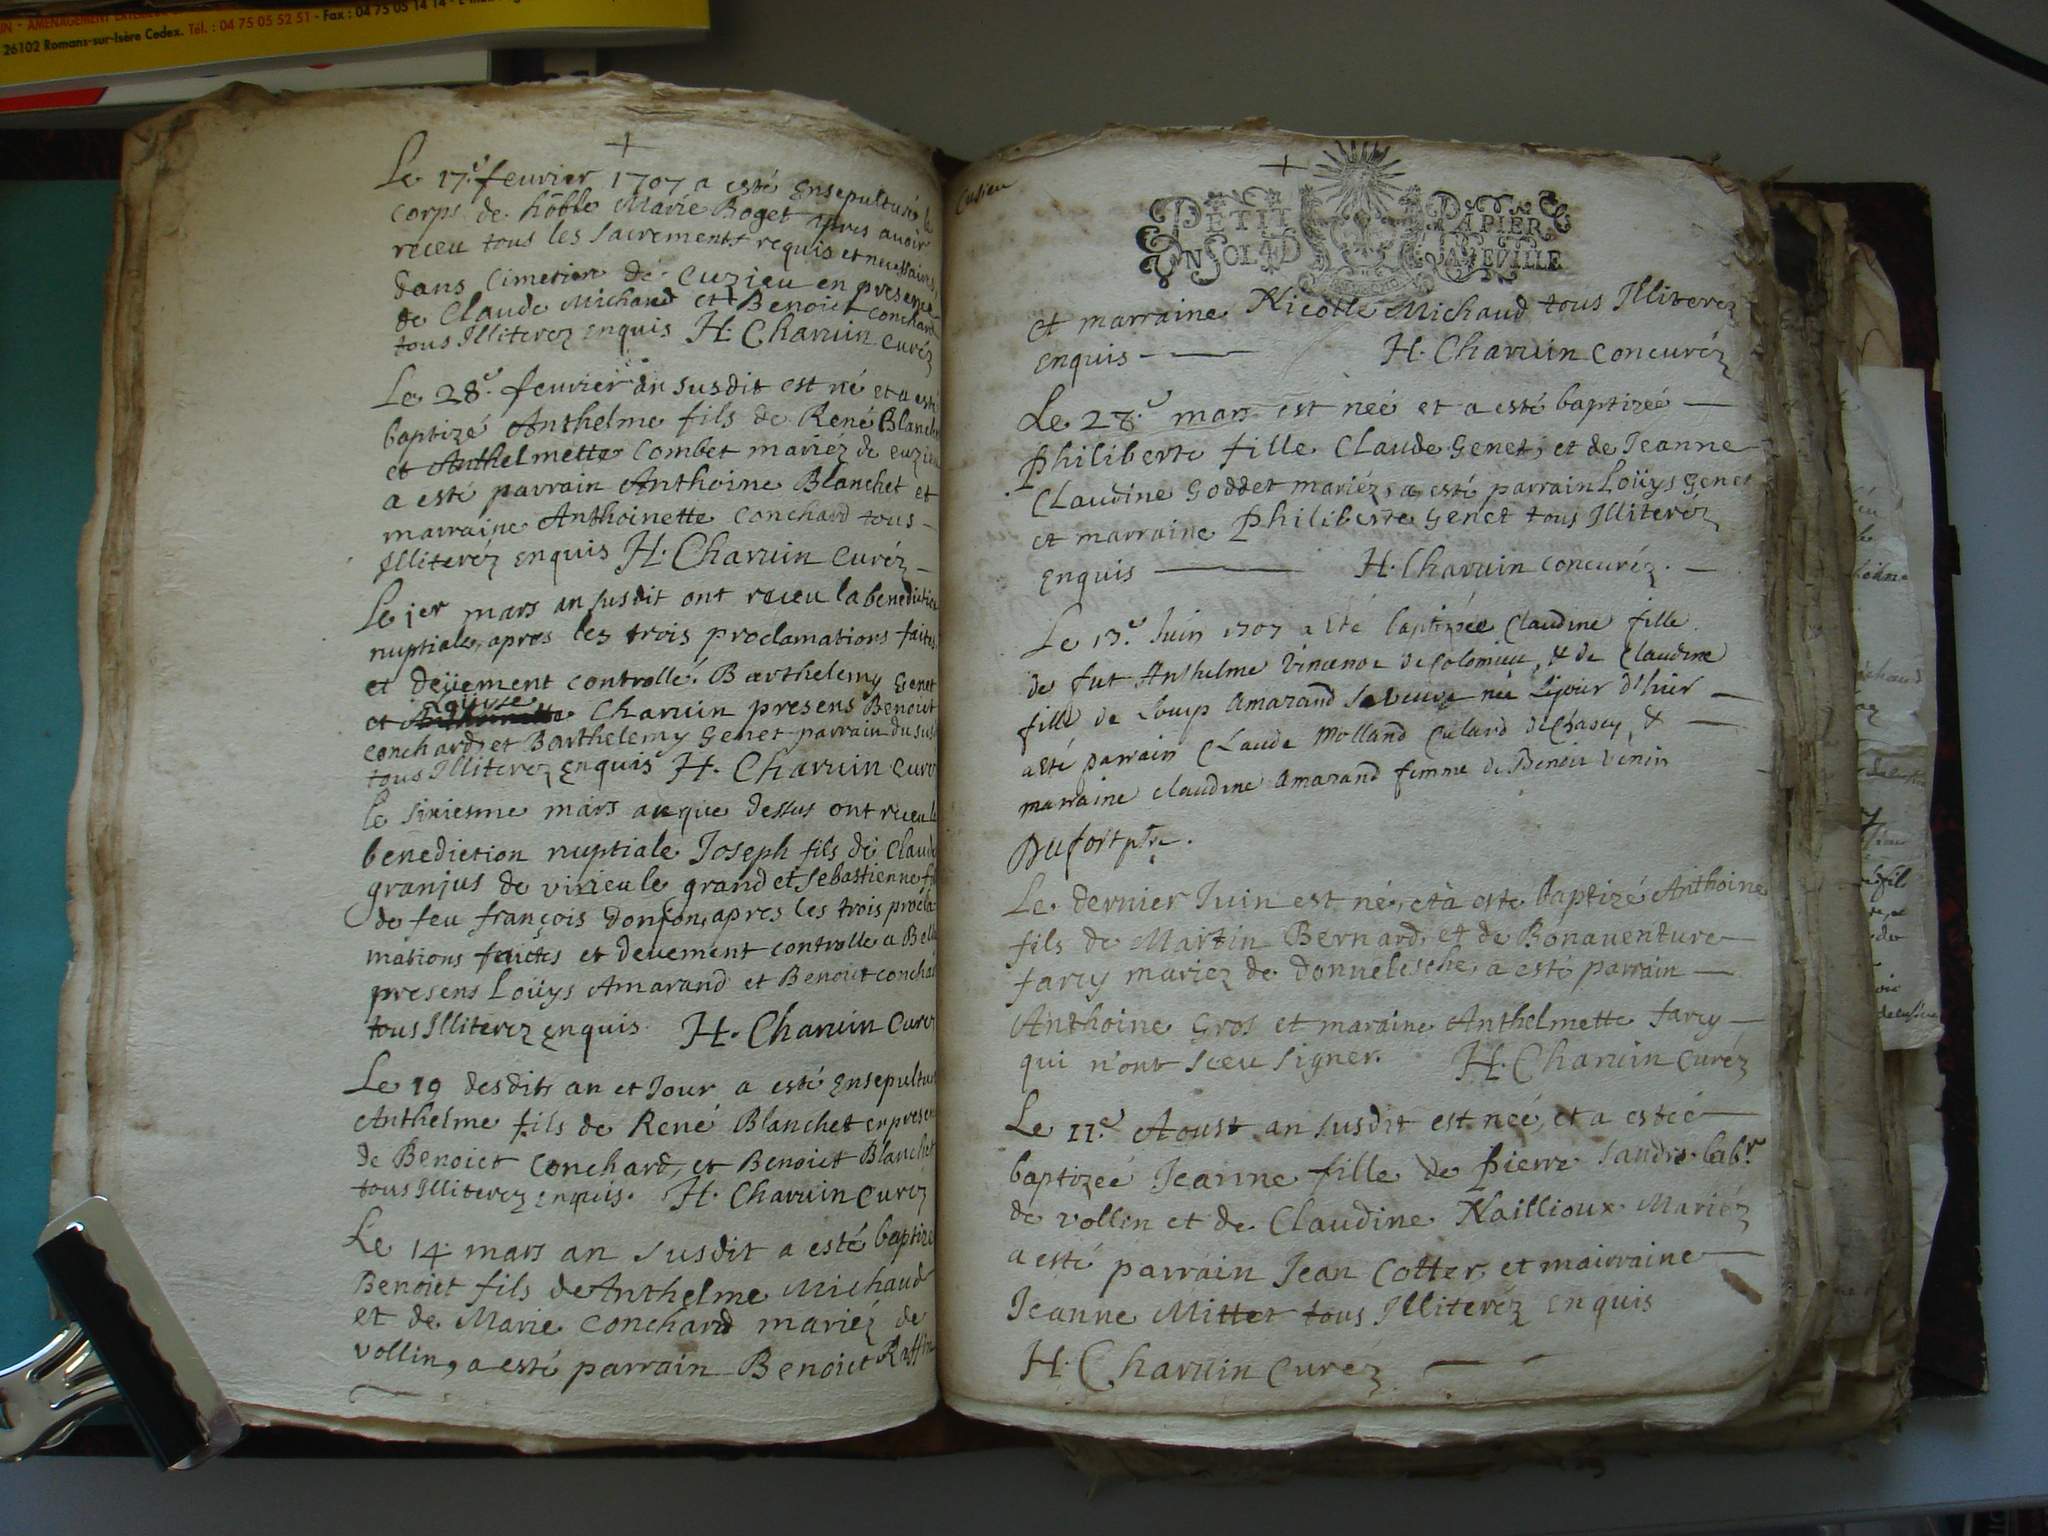 26102 Romans-sur-Isère Cedex. Tél. : 04 75 05 52 51 - Fax : 04 75 05 14 14
Le 17.e feurier 1707 a esté ensepulturé le
corps de hôble Marie Boget apres auoir
receu tous les sacrements requis et necessaires
dans Cimetiere de Cuzieu en presence
de Claude Michaud et Benoict Conchard
tous Illiterez enquis H. Charuin Curéz
Le 28.e feurier an susdit est né et a esté
baptizé Anthelme fils de René Blanche
et Anthelmette Combet mariéz de cuzieu
a esté parrain Anthoine Blanchet et
marraine Anthoinette Conchard tous
Illiteréz enquis H. Charuin Curéz
Le 1er mars an susdit ont receu la benedictio
nuptiale, apres les trois proclamations faites
et deüement controllé. Barthelemy Genet
et Charuin presens Benoict
Conchard, et Barthelemy Genet parrain du sus
tous Illiterez enquis H. Charuin Curé
Le sixiesme mars an que dessus ont receu la
benediction nuptiale Joseph fils de Claude
granjus de virieu le grand et Sebastienne fi
de feu françois Donçon, apres les trois procla
mations faictes et deuement controlle a Bell
presens Loüys Amarand et Benoict Concha
tous Illiterez enquis H. Charuin Curez
Le 19 desdits an et Jour a esté ensepultu
Anthelme fils de René Blanchet en presen
de Benoict Conchard, et Benoict Blanchet
tous Illiterez enquis. H. Charuin Curez
Le 14 mars an susdit a esté baptizé
Benoict fils de Anthelme Michaud
et de Marie Conchard mariéz de
vollin, a esté parrain Benoict Raffin
Cusieu
PETIT PAPIER
UN SOL 4D LA FEVILLE
et marraine Nicolle Michaud tous Illiterez
enquis H. Charuin Concuréz
Le 28.e mars est neé et a esté baptizeé
Philiberte fille Claude Genet, et de Jeanne
Claudine Goddet mariéz, a esté parrain Loüys Genet
et marraine Philiberte Genet tous Illiteréz
enquis H. Charuin Concuréz.
Le 13.e Juin 1707 a eté baptizée Claudine fille
de fut Anthelme Vincence de Colomieu, & de Claudine
fille de Louys Amarand sa veuve née le jour d'hier
a eté parrain Claude Molland Culard de Chasey, &
marraine Claudine Amarand femme de Benoit Venin
Dufort ptre.
Le dernier Juin est né, et à esté baptizé Anthoine
fils de Martin Bernard, et de Bonauenture
farcy mariez de donuelesche, a esté parrain
Anthoine Gros et maraine Anthelmette farcy
qui n'ont sceu signer. H. Charuin Curéz
Le 11.e Aoust an susdit est neé, et a esteé
baptizeé Jeanne fille de Pierre Landre labr
de vollin et de Claudine Naillioux Mariéz
a esté parrain Jean Cotter, et mairraine
Jeanne Mittet tous Illiteréz enquis
H. Charuin Curez